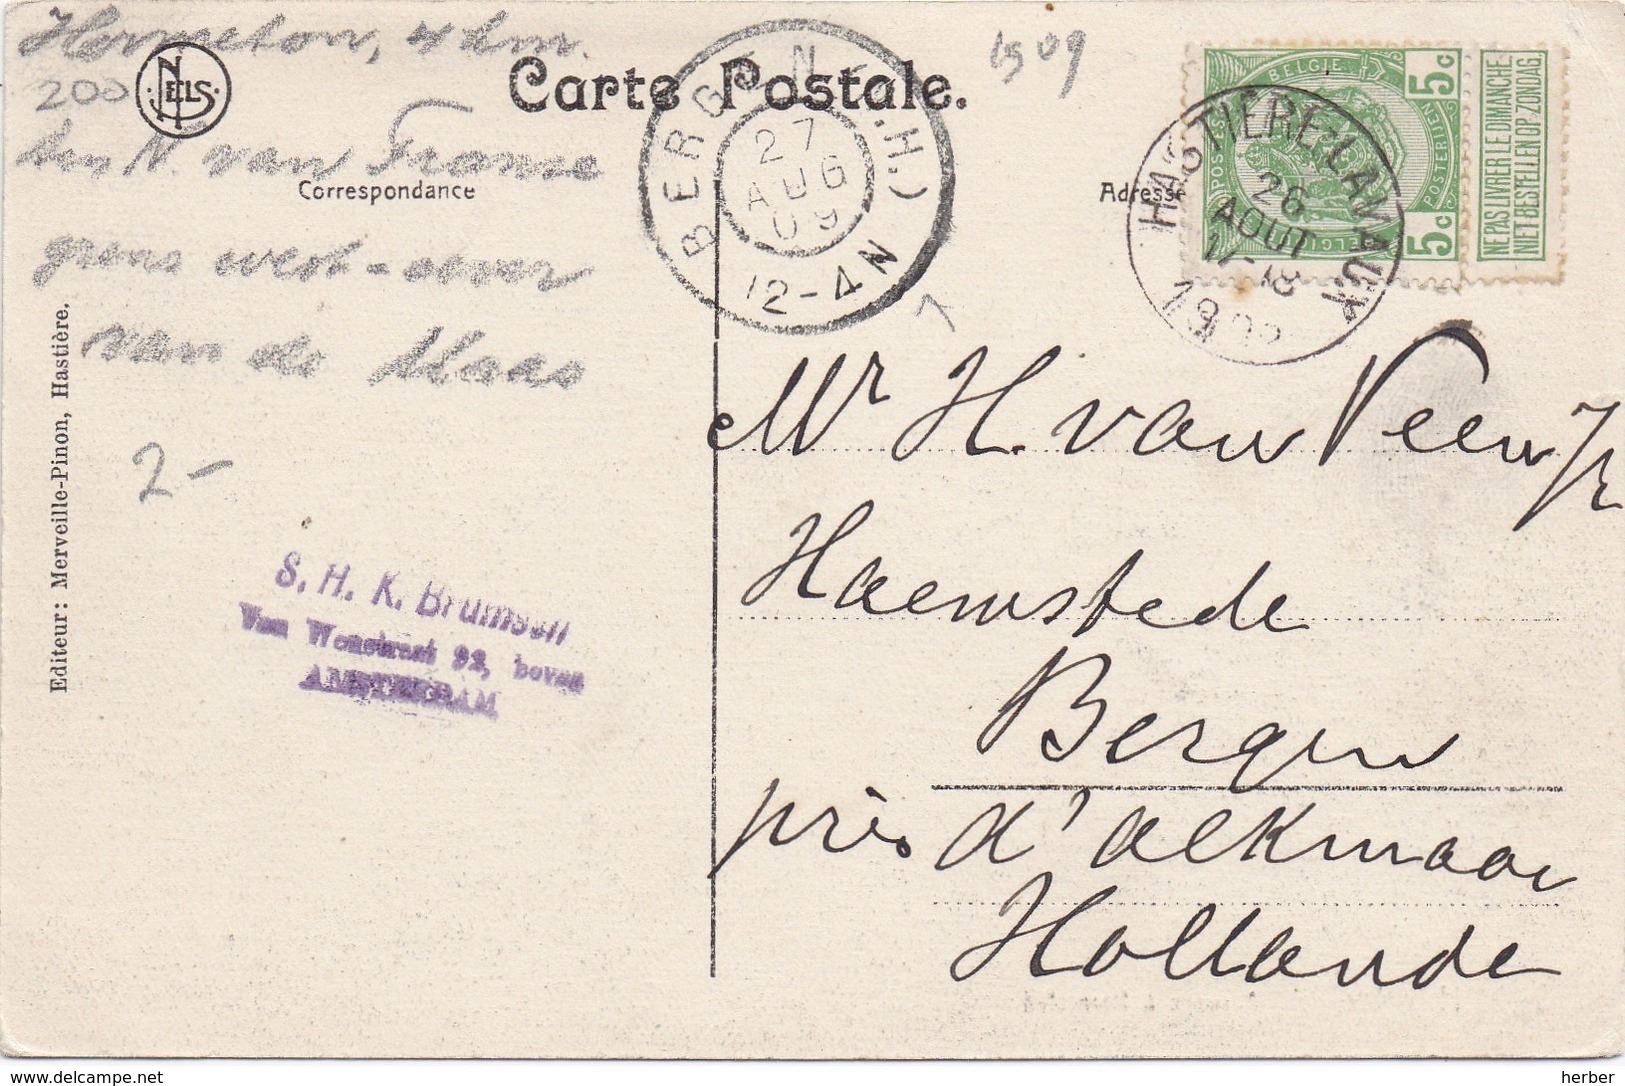 Hermeton, 4 km.
200
ten N. van Franse
grens west-oever
van de Maas
2-
NELS
Carte Postale.
1909
Correspondance
Adresse
BERGEN (N.H.)
27
AUG
09
12-4 N
HASTIÈRE-LAVAUX
26
AOUT
17-18
1909
POSTES BELGIE BELGIQUE POSTERIJEN
5c 5c
NE PAS LIVRER LE DIMANCHE
NIET BESTELLEN OP ZONDAG
Editeur: Merveille-Pinon, Hastière.
S. H. K. Brumsen
92, boven
AMSTERDAM
Mr H. van Veen Jr
Haemstede
Bergen
près d'Alkmaar
Hollande
delcampe.net
herber